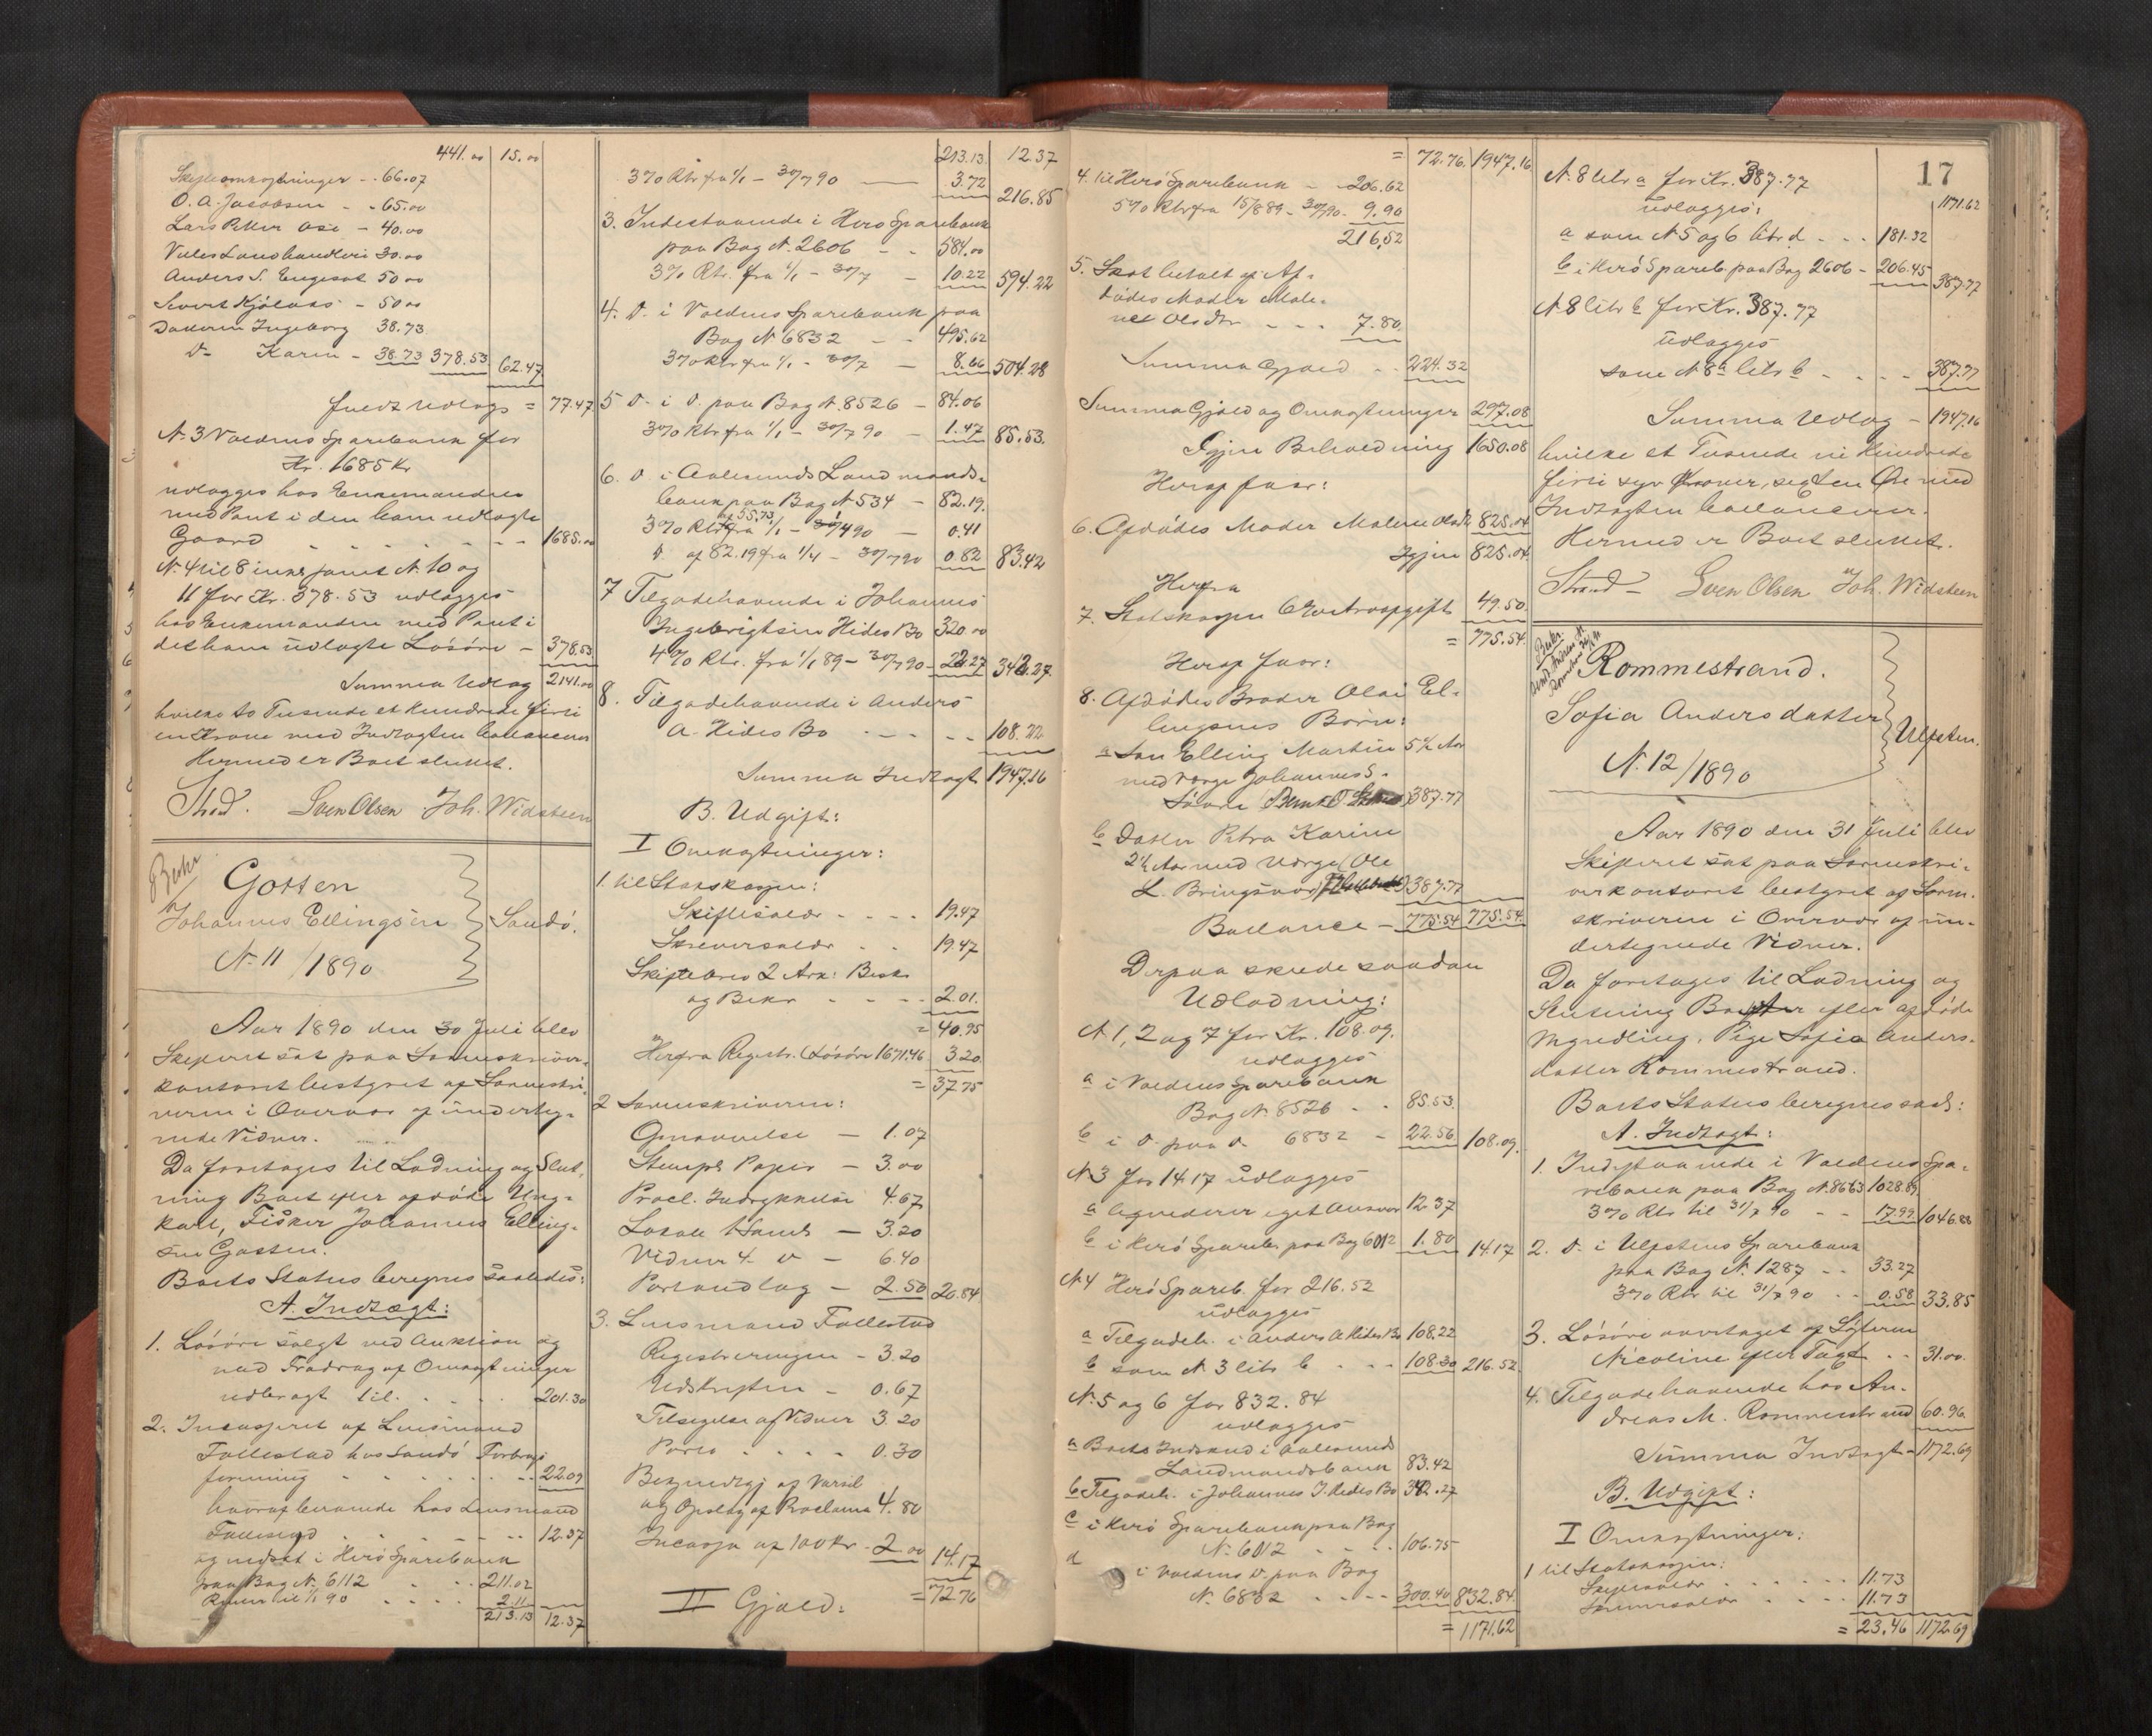 441.00 15.00
Skifteomkostninger - 66.07
O. A. Jacobsen - 65.00
Lars Petter Ose - 40.00
Landhandleri 30.00
Anders S. Engeset 50.00
Sivert - 50.00
Datteren Ingeborg 38.73
Do Karen - 38.73 378.53 62.47
Udlæg = 77.47
N. 3 Voldens Sparebank for
Kr. 1685 Kr
udlægges hos Enkemanden
med Pant i den ham udlagte
Gaard - - - 1685.00
N. 4 til 8 incl. samt N. 10 og
11 for Kr. 378.53 udlægges
hos Enkemanden med Pant i
det ham udlagte Løsøre - 378.53
Summa Udlæg 2141.00
hvilke to Tusende et Hundrede firti
en Krone med Indtægten balancerer
Hermed er Boet sluttet.
Strød. Sven Olsen Joh. Widsteen
Bekr
Gotten
Johannes Ellingsen Sandø.
N. 11/1890
Aar 1890 den 30 Juli blev
Skifteret sat paa Sorenskriver-
kontoret bestyret af Sorenskri-
veren i Overvær af underteg-
nede Vidner.
Da foretoges til Lodning og Slut-
ning Boet efter afdøde Ung-
karl, Fisker Johannes Elling-
sen Gotten.
Boets Status beregnes saaledes:
A. Indtægt:
1. Løsøre solgt ved Auktion og
med Fradrag af Omkostninger
udbragt til - - - 201.30
2. Incasseret af Lensmand
Follestad hos Sandø Forbrugs
forening - - - 22.09
hvoraf beroende hos Lensmand
Follestad - - - 12.37
og indsat i Herø Sparebank
paa Bog N. 6112 - - 211.02
Renter til 1/1 90 - - 2.11
213.13 12.37
213.13 12.37
3% Rtr fra 1/1 - 30/7 90 - 3.72
216.85
3. Indestaaende i Herø Sparebank
paa Bog N. 2606 - - 584.00
3% Rtr. fra 1/1 - 30/7 - 10.22 594.22
4. D. i Voldens Sparebank paa
Bog N 6832 - - 495.62
3% Rtr fra 1/1 - 30/7 - 8.66 504.28
5 D. i D. paa Bog N. 8526 - 84.06
3% Rtr fra 1/1 - 30/7 90 - 1.47 85.53.
6. D. i Aalesunds Landmands-
bank paa Bog N 534 - 82.19.
af 55.73
3% Rtr fra 1/1 - 1/4 90 - 0.41
D. af 82.19 fra 1/4 - 30/7 90 0.82 83.42
7 Tilgodehavende i Johannes
Ingebrigtsen Hides Bo 320.00
4% Rtr. fra 1/1 89 - 30/7 90 - 22.27 342.27.
8. Tilgodehavende i Anders
A. Hides Bo - - - 108.22
Summa Indtægt 1947.16
B. Udgift:
I Omkostninger:
1. til Statskassen:
Skiftesalær - - - - 19.47
Skriversalær - - 19.47
Skiftebrev 2 Ark: Besk.
og Bekr - - - - 2.01.
= 40.95
Herfra Registr. (Løsøre 1671.46 3.20
= 37.75
2 Sorenskriveren:
Omsendelse - 1.07
Stempl. Papir - 3.00
Procl. Indrykkelse 4.67
Lokale t. Sands - 3.20
Vidner 4. D - 6.40
Portoudlæg - 2.50 20.84
3. Lensmand Follestad
Registreringen - 3.20
Udskriften - 0.67
Tilsigelse af Vidner 3.20
Porto - - - - 0.30
af Varsel
og Opslag af Proclama 4.80
Incasso af 100 Kr - 2.00 14.17
= 72.76
II Gjæld:
= 72.76. 1947.16
4. til Herø Sparebank - - 206.62
5% Rtr fra 15/8 89 - 30/7 90 - 9.90
216.52
5. Skat betalt af Af-
dødes Moder Male-
ne Olsdtr - - - 7.80.
Summa Gjæld - - 224.32
Summa Gjæld og Omkostninger 297.08
Igjen Beholdning 1650.08
Heraf faar:
6. Afdødes Moder Malene Olsdtr 825.04
Igjen 825.04.
Herfra
7. Statskassen 6% Arveafgift 49.50.
= 775.54.
Heraf faar:
8. Afdødes Broder Olai El-
lingsens Børn:
a Søn Elling Martin 5 1/2 Aar
med Værge Johannes S.
387.77
b Datter Petra Karine
2 1/2 Aar med Værge Ole
L. Bringsvor 387.77
Ballance - 775.54 775.54.
Derpaa skede saadan
Udlodning:
N 1, 2 og 7 for Kr. 108.09.
udlægges
a i Voldens Sparebank
Bog N. 8526 - - 85.53.
b i D. paa D. 6832 - 22.56 108.09.
N 3 for 14.17 udlægges
a eget Ansvar 12.37
b i Herø Spareb. paa Bog 6012 1.80 14.17
N 4 Herø Spareb. for 216.52
udlægges
a Tilgodeh. i Anders A Hides Bo 108.22
b som N 3 litr b - - - 108.30 216.52.
N. 5 og 6 for 832.84
udlægges
a Boets Indskud i Aalesunds
Landmandsbank 83.42
b Tilgodeh. i Johannes J. Hides Bo 342.27
c i Herø Sparebank paa Bog
N. 6012 - - - 106.75
d i Voldens D. paa Bog
N. 6832 - - - 300.40 832.84.
= 1171.62
17
N. 8 litr a for Kr. 387.77
udlægges: 1171.62
a som N 5 og 6 litr d - - - 181.32
b i Herø Spareb. paa Bog 2606 - 206.45 387.77
N 8 litr b for Kr. 387.77
udlægges
som N 8 a litr b - - - - 387.77
Summa Udlæg - 1947.16
hvilke et Tusende ni Hundrede
firti syv Kroner, segsten Øre med
Indtægten ballancerer.
Hermed er Boet sluttet.
Strød - Sven Olsen Joh. Widsteen
Bekr.
Rommestrand.
Sofia Andersdatter Ulfsten.
N. 12/1890
Aar 1890 den 31 Juli blev
Skifteret sat paa Sorenskri-
verkontoret bestyret af Soren-
skriveren i Overvær af un-
dertegnede Vidner.
Da foretoges til Lodning og
Slutning Boet efter afdøde
Myndling, Pige Sofia Anders-
datter Rommestrand.
Boets Status beregnes saal:
A. Indtægt:
1. Indestaaende i Voldens Spa-
rebank paa Bog N. 8663 1028.89
3% Rtr til 31/7 90 - - 17.99. 1046.88
2. D. i Ulfstens Sparebank
paa Bog N. 1287 - - 33.27
3% Rtr til 31/7 90 - - 0.58 33.85
3. Løsøre overtaget af Søsteren
Nicoline efter Taxt - - 31.00.
4. Tilgodehavende hos An-
dreas M. Rommestrand 60.96
Summa Indtægt - 1172.69
B. Udgift:
I Omkostninger:
1 til Statskassen:
Skiftesalær - - - - 11.73
Skriversalær - - - - 11.73
= 23.46 1172.69